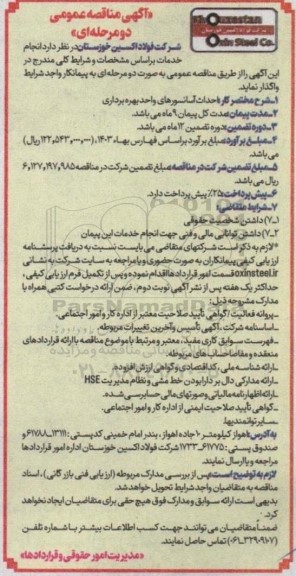 «آگهی مناقصه عمومی
دو مرحله‌ای»
Khouzestan
Oxin Steel Co.
شرکت فولاد اکسین خوزستان در نظر دارد انجام
خدمات براساس مشخصات و شرایط کلی مندرج در
این آگهی را از طریق مناقصه عمومی به صورت دو مرحله‌ای به پیمانکار واجد شرایط
واگذار نماید.
۱ـ شرح مختصر کار: احداث آسانسورهای واحد بهره برداری
۲ـ مدت پیمان: مدت کل پیمان ۹ ماه می باشد.
۳ـ دوره تضمین: دوره تضمین ۱۲ ماه می باشد.
۴ـ مبلغ برآورد: مبلغ برآورد براساس فهارس بهاء ۱۴۰۳، (۱۲۲,۵۴۳,۰۰۰,۰۰۰ ریال)
می باشد.
۵ـ مبلغ تضمین شرکت در مناقصه: مبلغ تضمین شرکت در مناقصه ۶,۱۲۷,۱۹۷,۹۸۵
ریال می باشد.
۶ـ پیش پرداخت: ۲۵٪ پیش پرداخت دارد.
۷ـ شرایط متقاضی
۱ـ۷) داشتن شخصیت حقوقی
۲ـ۷) داشتن توانائی مالی و فنی جهت انجام خدمات این پیمان
*لازم به ذکر است شرکتهای متقاضی می بایست نسبت به دریافت پرسشنامه
ارزیابی کیفی پیمانکاران به صورت حضوری و یا مراجعه به سایت شرکت به نشانی
oxinsteel.ir قسمت امور قرارداد ها اقدام نموده و پس از تکمیل فرم ارزیابی کیفی،
حداکثر یک هفته پس از نشر آگهی نوبت دوم، ضمن ارائه درخواست کتبی همراه با
مدارک مشروحه ذیل:
ـ پروانه فعالیت / گواهی تأیید صلاحیت معتبر از اداره کار و امور اجتماعی.
ـ اساسنامه شرکت، آگهی تأسیس و آخرین تغییرات مربوطه.
ـ فهرست سوابق کاری مفید، معتبر و مرتبط با موضوع مناقصه با ارائه قراردادهای
منعقده و مفاصاحساب‌های مربوطه.
ـ ارائه شناسه ملی، کد اقتصادی و گواهی ارزش افزوده.
ـ ارائه مدارکی دال بر دارا بودن خط مشی و نظام مدیریت HSE
ـ ارائه اظهارنامه مالیاتی و صورتهای مالی حسابرسی شده.
ـ گواهی تأیید صلاحیت ایمنی از اداره کار و امور اجتماعی.
ـ سایر توانمندیها.
به آدرس: اهواز کیلومتر ۱۰ جاده اهواز، بندر امام خمینی کدپستی: ۱۳۱۱۱ـ۶۱۷۸۸ و
صندوق پستی: ۶۱۷۷۵ـ۱۷۳۳ شرکت فولاد اکسین خوزستان اداره امور قراردادها
مراجعه و یا ارسال نمایند.
لازم به توضیح است پس از بررسی مدارک مربوطه (ارزیابی فنی بازرگانی)، اسناد
مناقصه به متقاضیان واجد شرایط تحویل خواهد شد.
بدیهی است ارائه سوابق و مدارک فوق هیچ حقی برای متقاضیان ایجاد نخواهد
کرد.
ضمناً متقاضیان می توانند جهت کسب اطلاعات بیشتر با شماره تلفن
(۳۲۹۰۹۱۰۷ـ۰۶۱) تماس حاصل نمایند.
«مدیریت امور حقوقی و قراردادها»